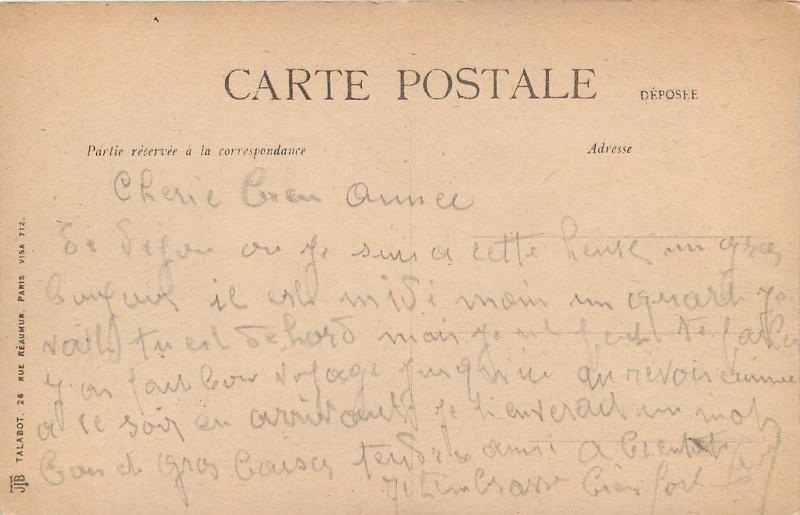 CARTE POSTALE
DÉPOSÉE
Partie réservée à la correspondance
Adresse
Cherie bien aimée
de Dijon ou je suis a cette heure un gros
bonjour il est midi moin un quart je
tu est dehord mais je
j ai fait bon voyage jusqu'ici au revoir
a ce soir en arrivant je t'enverait un mot
bon de gros baiser tendre ami a bientot
je t'embrasse bien fort
TALABOT, 26 RUE RÉAUMUR. PARIS VISA 712.
JTB